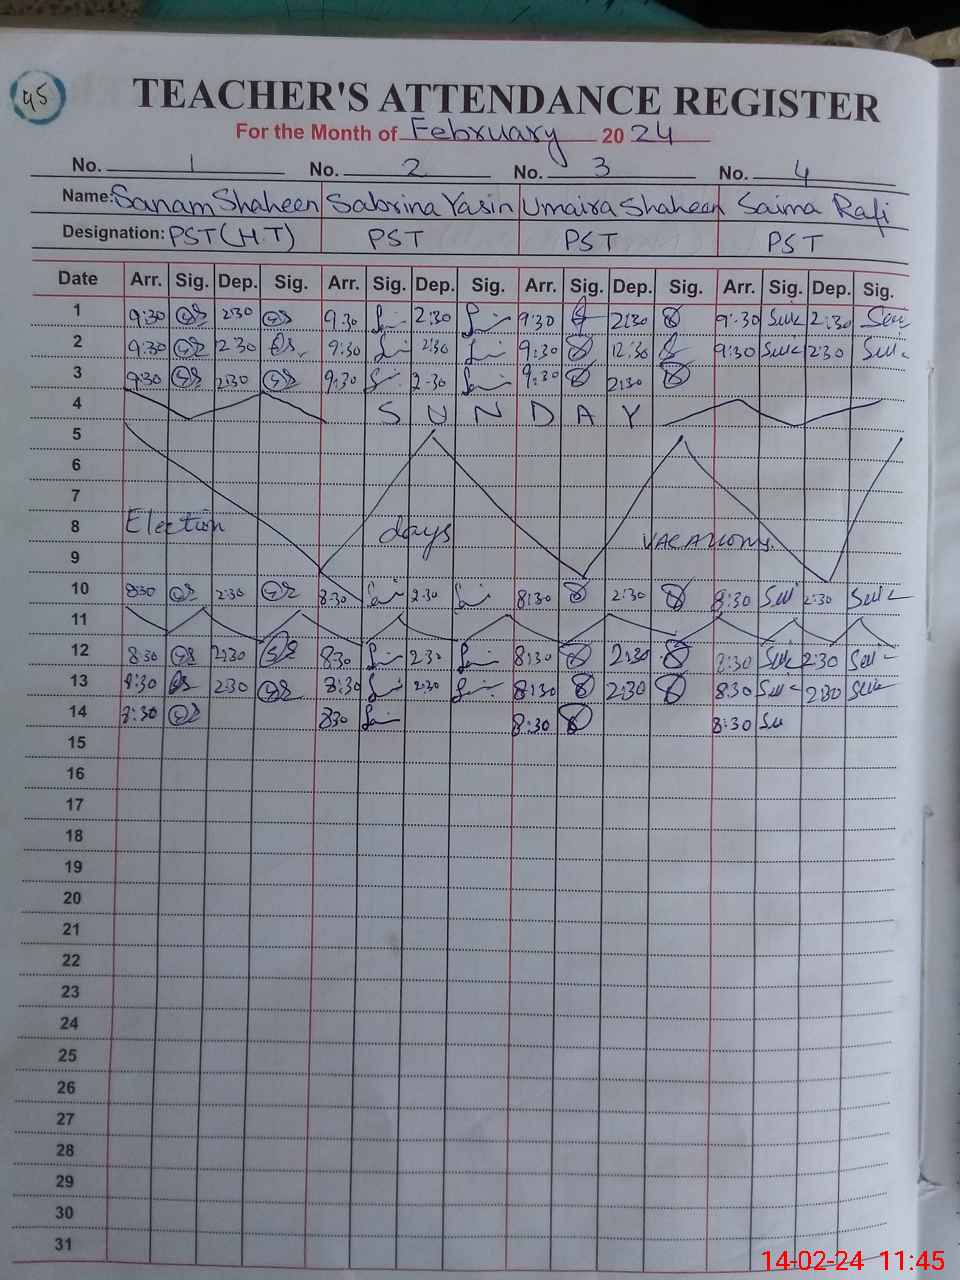 95
TEACHER'S ATTENDANCE REGISTER
For the Month of February 2024
No. 1 No. 2 No. 3 No. 4
Name: Sanam Shaheen Sabrina Yasin Umaira Shaheen Saima Rafi
Designation: PST (H.T) PST PST PST
Date Arr. Sig. Dep. Sig. Arr. Sig. Dep. Sig. Arr. Sig. Dep. Sig. Arr. Sig. Dep. Sig.
1 9:30 2:30 9:30 2:30 9:30 2:30 9:30 2:30
2 9:30 2:30 9:30 2:30 9:30 12:30 9:30 2:30
3 9:30 2:30 9:30 2:30 9:30 2:30
4 SUNDAY
5
6
7
8 Election days vacations.
9
10 8:30 2:30 8:30 2:30 8:30 2:30 8:30 2:30
11
12 8:30 2:30 8:30 2:30 8:30 2:30 8:30 2:30
13 8:30 2:30 8:30 2:30 8:30 2:30 8:30 2:30
14 8:30 8:30 8:30 8:30
15
16
17
18
19
20
21
22
23
24
25
26
27
28
29
30
31
14-02-24 11:45